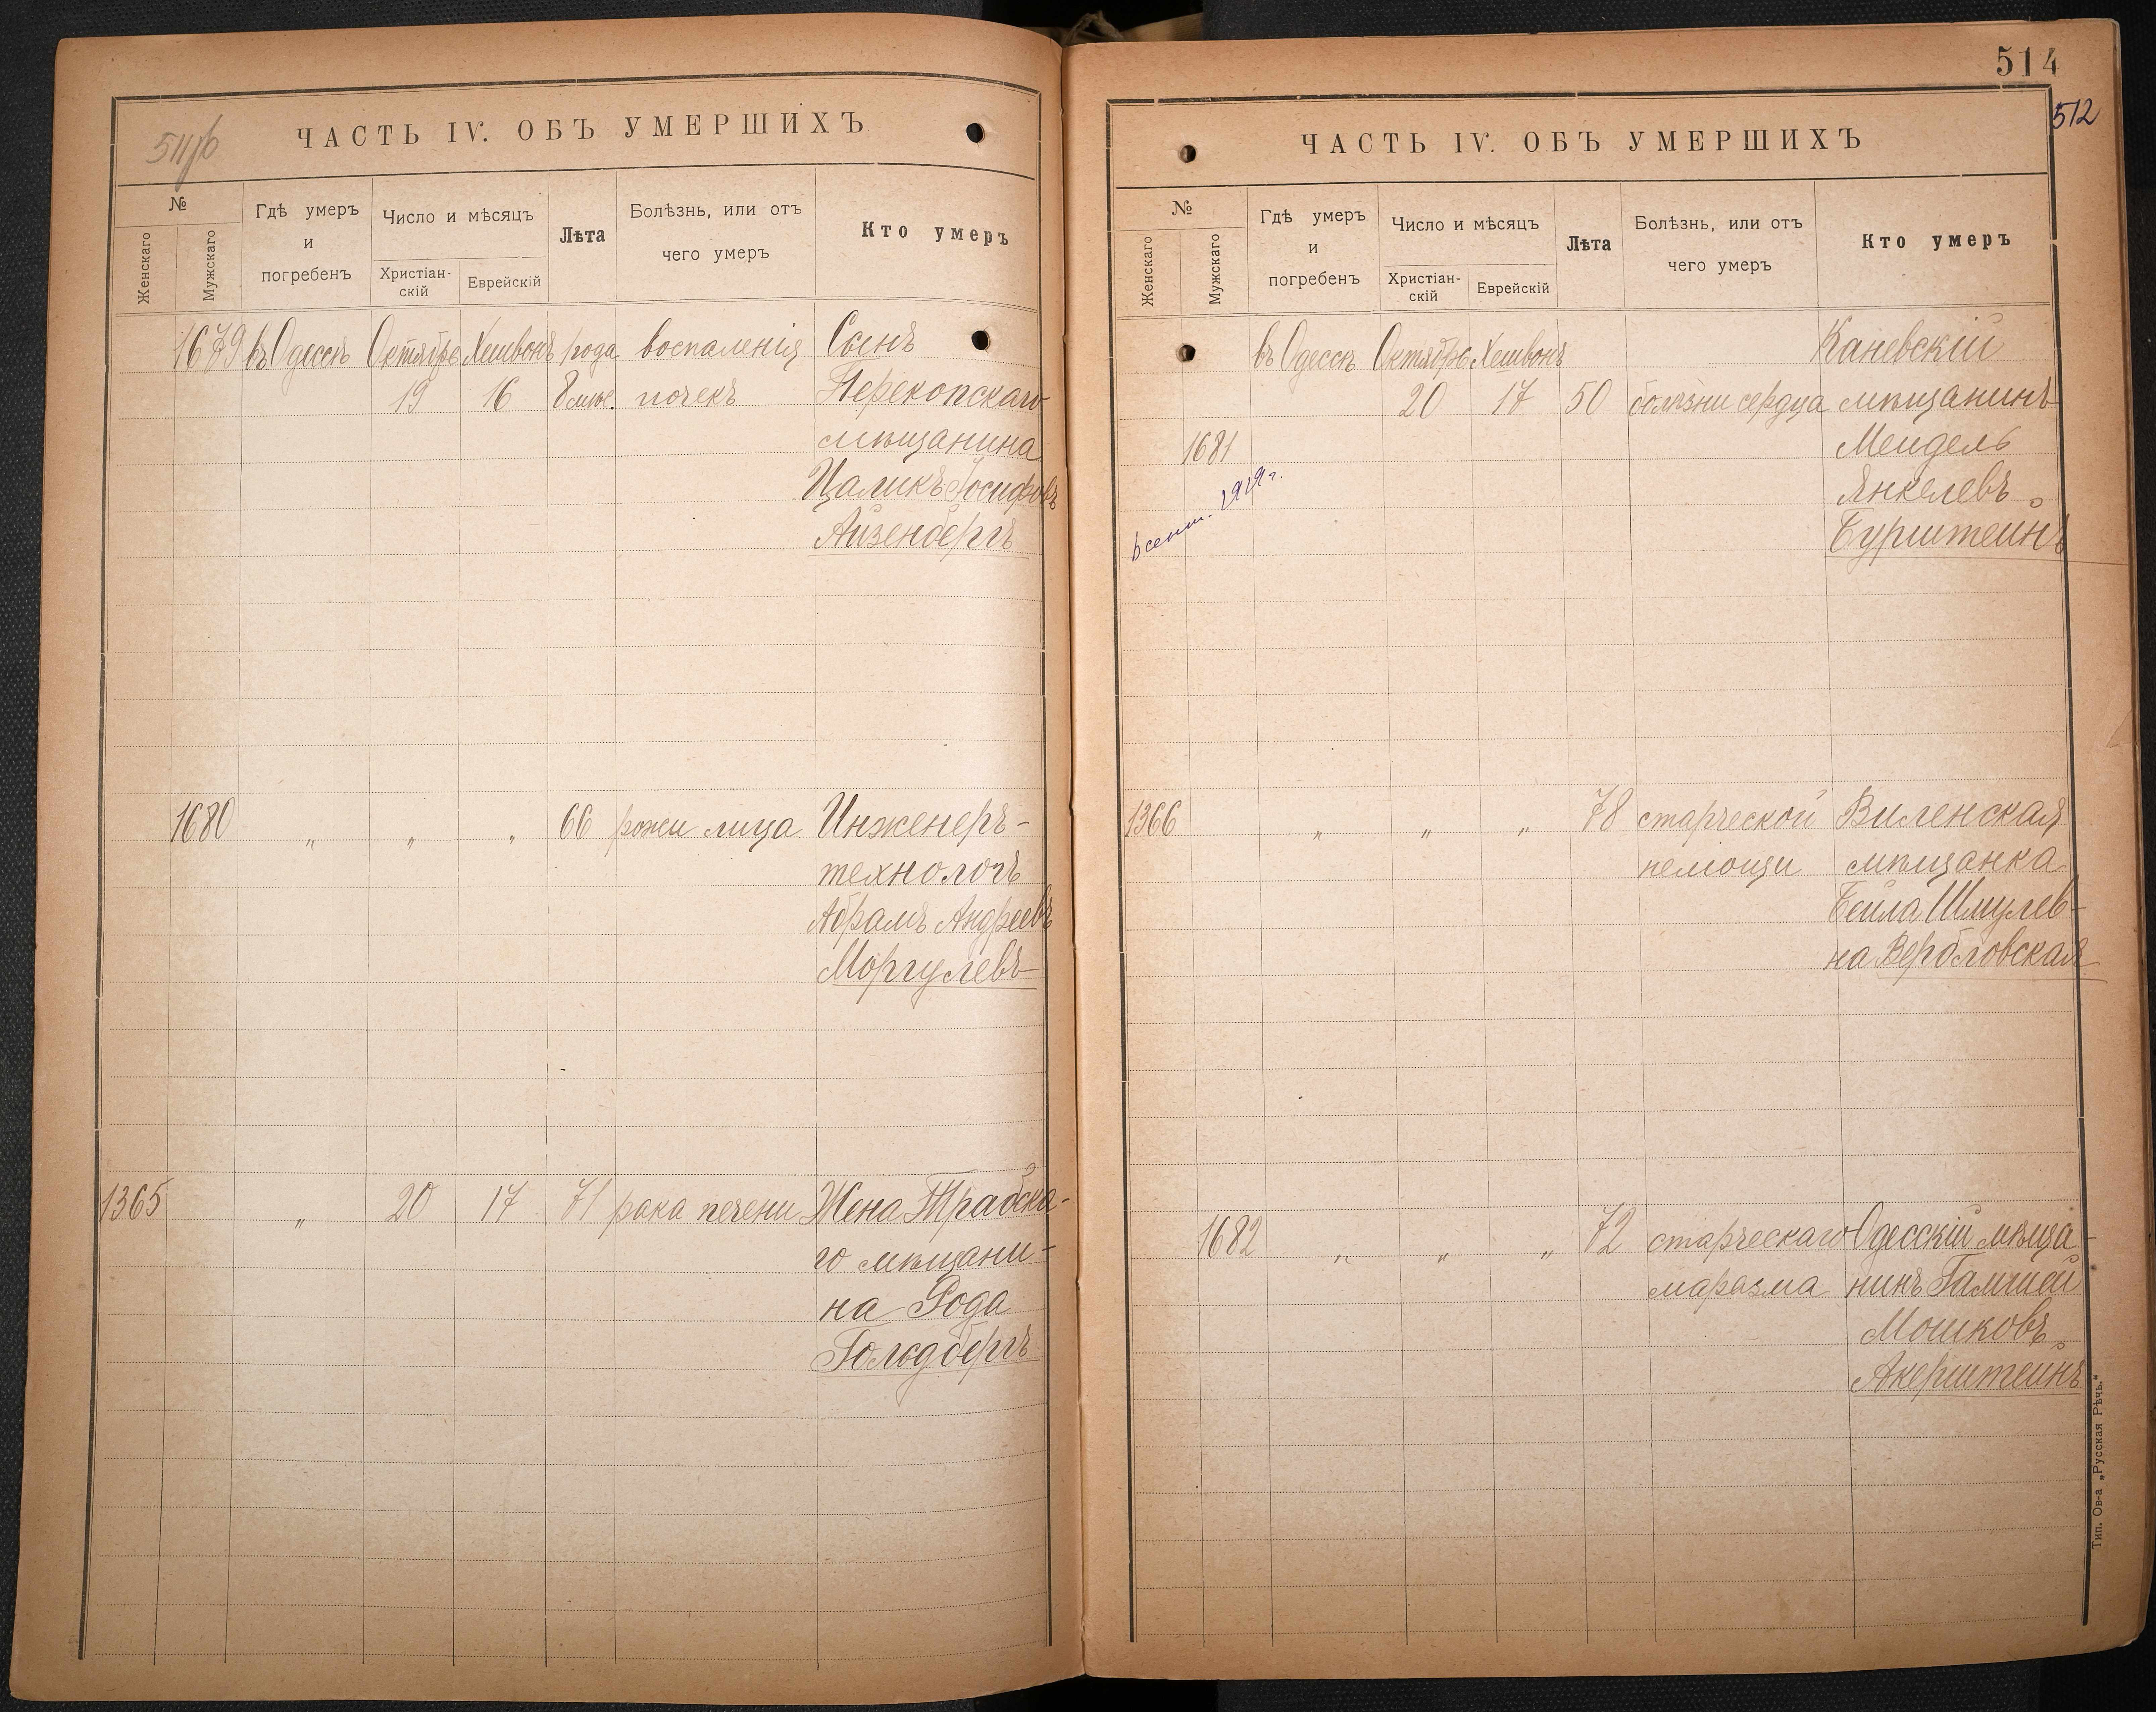 511/б
ЧАСТЬ IV. ОБЪ УМЕРШИХЪ
№
Женскаго
Мужскаго
Гдѣ умеръ
и
погребенъ
Число и мѣсяцъ
Христіан-
скій
Еврейскій
Лѣта
Болѣзнь, или отъ
чего умеръ
Кто умеръ
1679 въ Одессѣ Октября Хешвонъ года воспаленія Сынъ
19 16 почекъ Перекопскаго
мѣщанина
Цаликъ Іосифовъ
Айзенбергъ
1680 " " " 66 рожи лица Инженеръ-
технологъ
Абрамъ Андреевъ
Моргулевъ
1365 " 20 17 71 рака печени Жена Трабска-
го мѣщани-
на Рода
Гольдбергъ
514
512
ЧАСТЬ IV. ОБЪ УМЕРШИХЪ
№
Женскаго
Мужскаго
Гдѣ умеръ
и
погребенъ
Число и мѣсяцъ
Христіан-
скій
Еврейскій
Лѣта
Болѣзнь, или отъ
чего умеръ
Кто умеръ
въ Одессѣ Октября Хешвонъ Каневскій
20 17 50 болѣзни сердца мѣщанинъ
1681 Мендель
Янкелевъ
Бурштейнъ
1919 г.
1366 " " " 78 старческой Виленская
немощи мѣщанка
Бейла Шмулев-
на Вербловская
1682 " " " 72 старческаго Одесскій мѣща-
маразма нинъ
Мошковъ
Акерштейнъ
Тип. Ов-а „Русская Рѣчь."